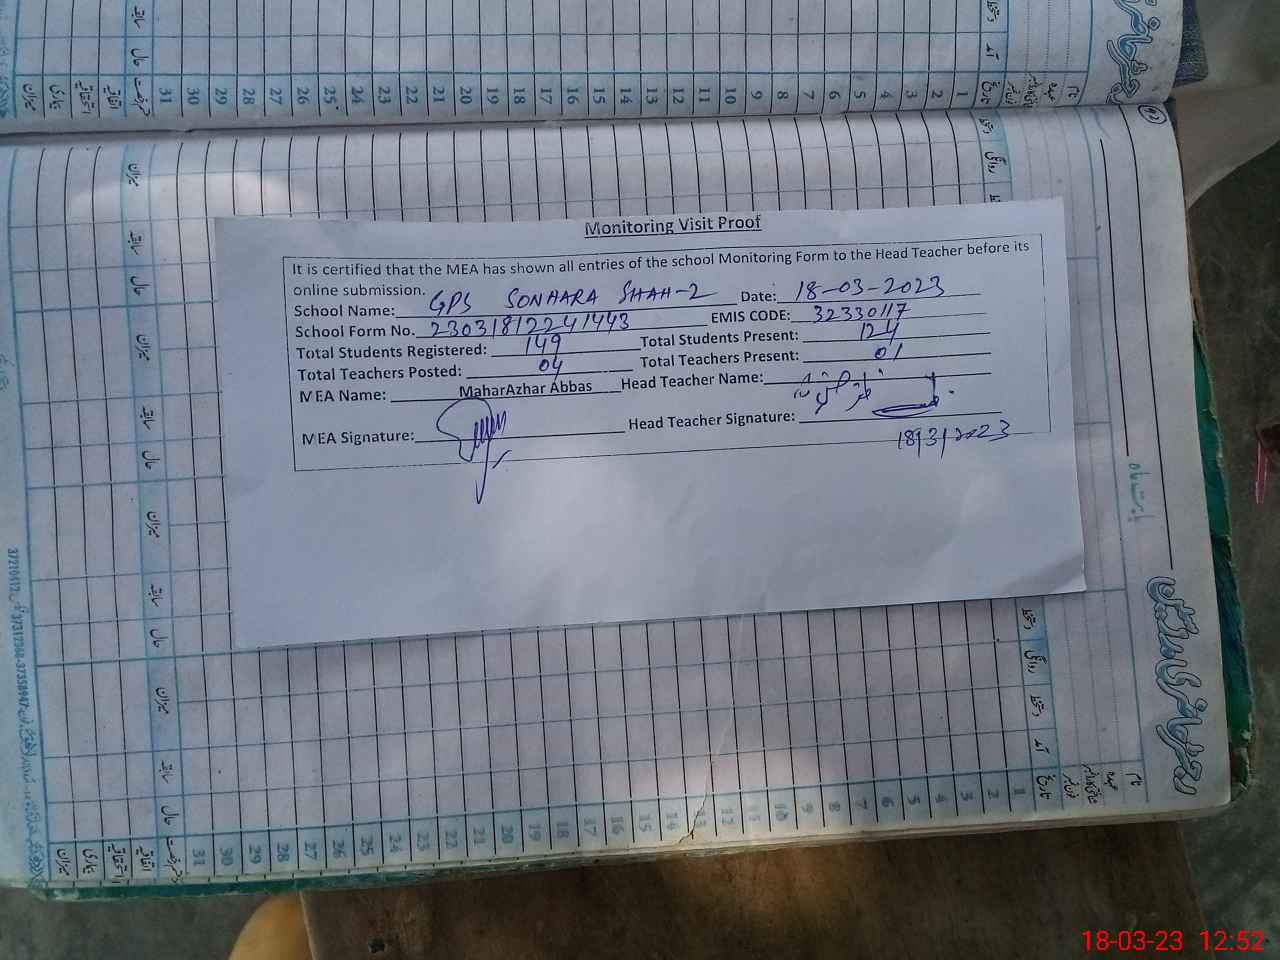 31 30 29 28 27 26 25 24 23 22 21 20 19 18 17 16 15 14 13 12 11 10 9 8 7 6 5 4 3 2 1
Monitoring Visit Proof
It is certified that the MEA has shown all entries of the school Monitoring Form to the Head Teacher before its
online submission.
School Name: GPS SONHARA SHAH-2 Date: 18-03-2023
School Form No. 23031812241443 EMIS CODE: 32330117
Total Students Registered: 149 Total Students Present: 124
Total Teachers Posted: 04 Total Teachers Present: 01
MEA Name: MaharAzhar Abbas Head Teacher Name:
MEA Signature: Head Teacher Signature:
18/3/2023
میزان
سابقہ
حال
میزان
سابقہ
حال
میزان
سابقہ
حال
میزان
سابقہ
حال
بابت ماہ
رجسٹر حاضری مدرسین
نام
عہدہ
تاریخ
آمد
دستخط
روانگی
دستخط
31 30 29 28 27 26 25 24 23 22 21 20 19 18 17 16 15 14 13 12 11 10 9 8 7 6 5 4 3 2 1
اتفاقیہ
استحقاقیہ
بیماری
میزان
18-03-23 12:52